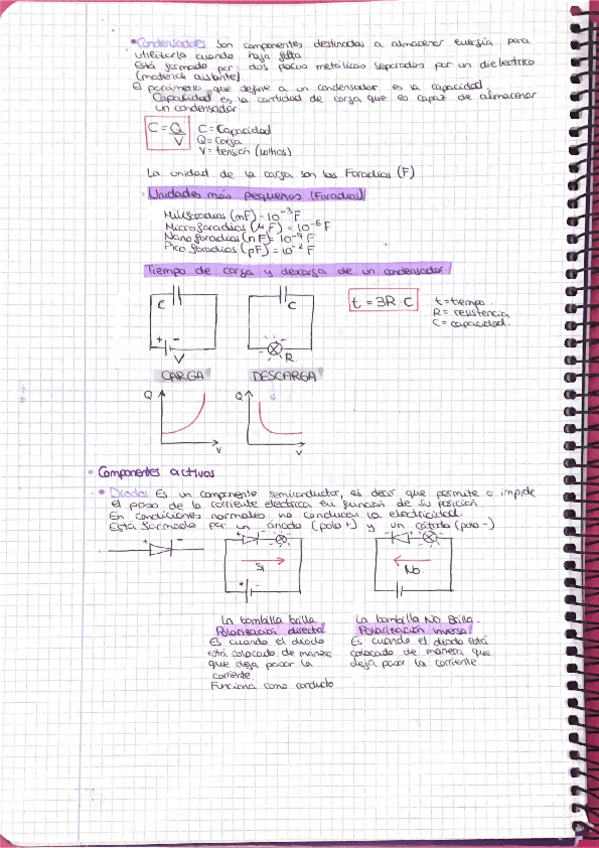 • Condensadores Son componentes destinados a almacenar energía para
utilizarla cuando haga falta
Está formado por dos placas metálicas separadas por un dielectrico
(material aislante)
El parámetro que define a un condensador es la capacidad.
Capacidad es la cantidad de carga que es capaz de almacenar
un condensador
C = Q/V
C = Capacidad
Q = Carga
V = tensión (voltios)
La unidad de la carga son los Faradios (F)
Unidades más pequeñas (Faradios)
Milifaradios (mF) = 10⁻³ F
Microfaradios (µF) = 10⁻⁶ F
Nanofaradios (nF) = 10⁻⁹ F
Picofaradios (pF) = 10⁻² F
Tiempo de carga y descarga de un condensador
C
+ -
V
C
R
t = 3R · C
t = tiempo.
R = resistencia
C = capacidad.
CARGA
DESCARGA
Q
V
Q
V
• Componentes activos
• Diodos Es un componente semiconductor, es decir que permite o impide
el paso de la corriente electrica en función de su posición.
En condiciones normales no conduce la electricidad.
Está formado por un ánodo (polo +) y un cátodo (polo -)
+ -
+ -
Si
+ -
- +
No
La bombilla brilla
Polarización directa
Es cuando el diodo
está colocado de manera
que deja pasar la
corriente.
Funciona como conducto
La bombilla No Brilla.
Polarización inversa
Es cuando el diodo está
colocado de manera que
deja pasar la corriente.